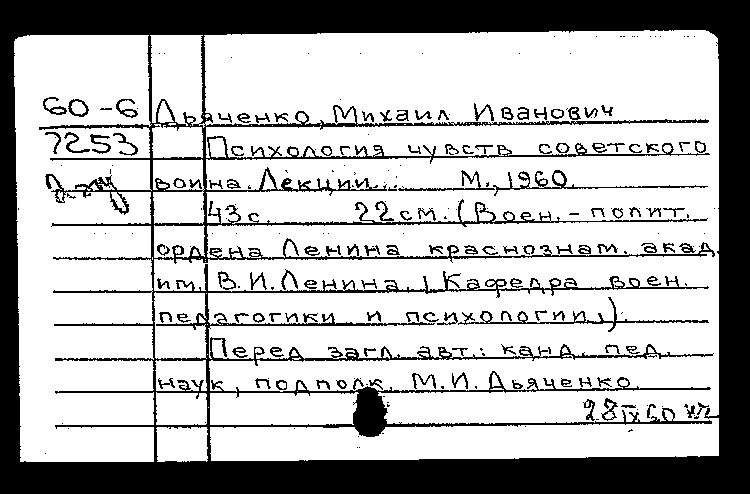 60-6 Дьяченко, Михаил Иванович
7253 Психология чувств советского
воина. Лекции. М., 1960.
43 с. 22 см. (Воен.-полит.
ордена Ленина краснознам. акад.
им. В.И.Ленина. Кафедра воен.
педагогики и психологии.)
Перед загл. авт.: канд. пед.
наук, подполк. М.И. Дьяченко.
28 IX 60